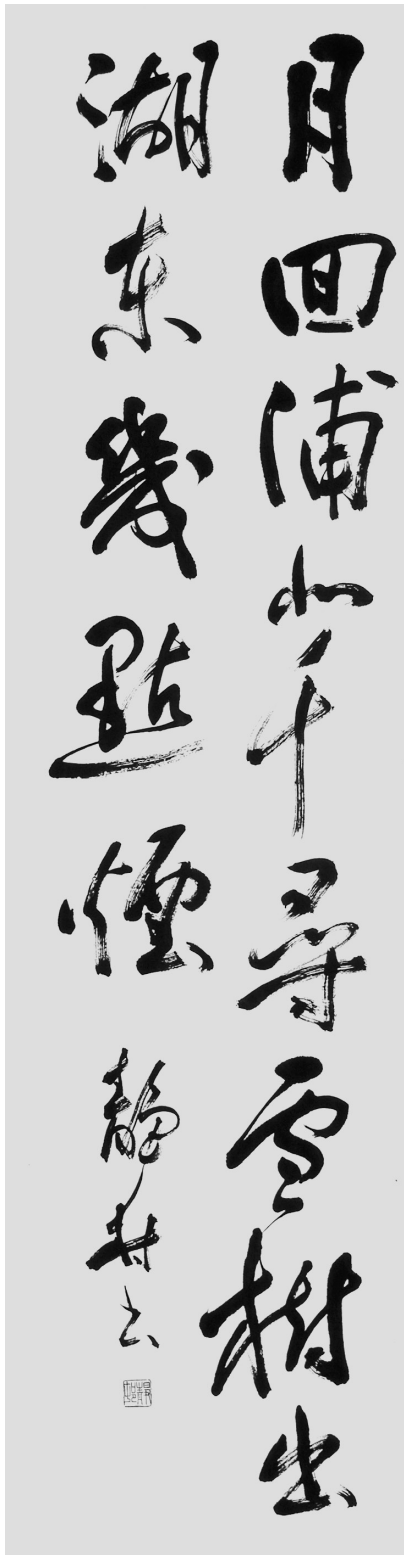 月回浦北千尋雪樹出
湖東幾點煙 靜书